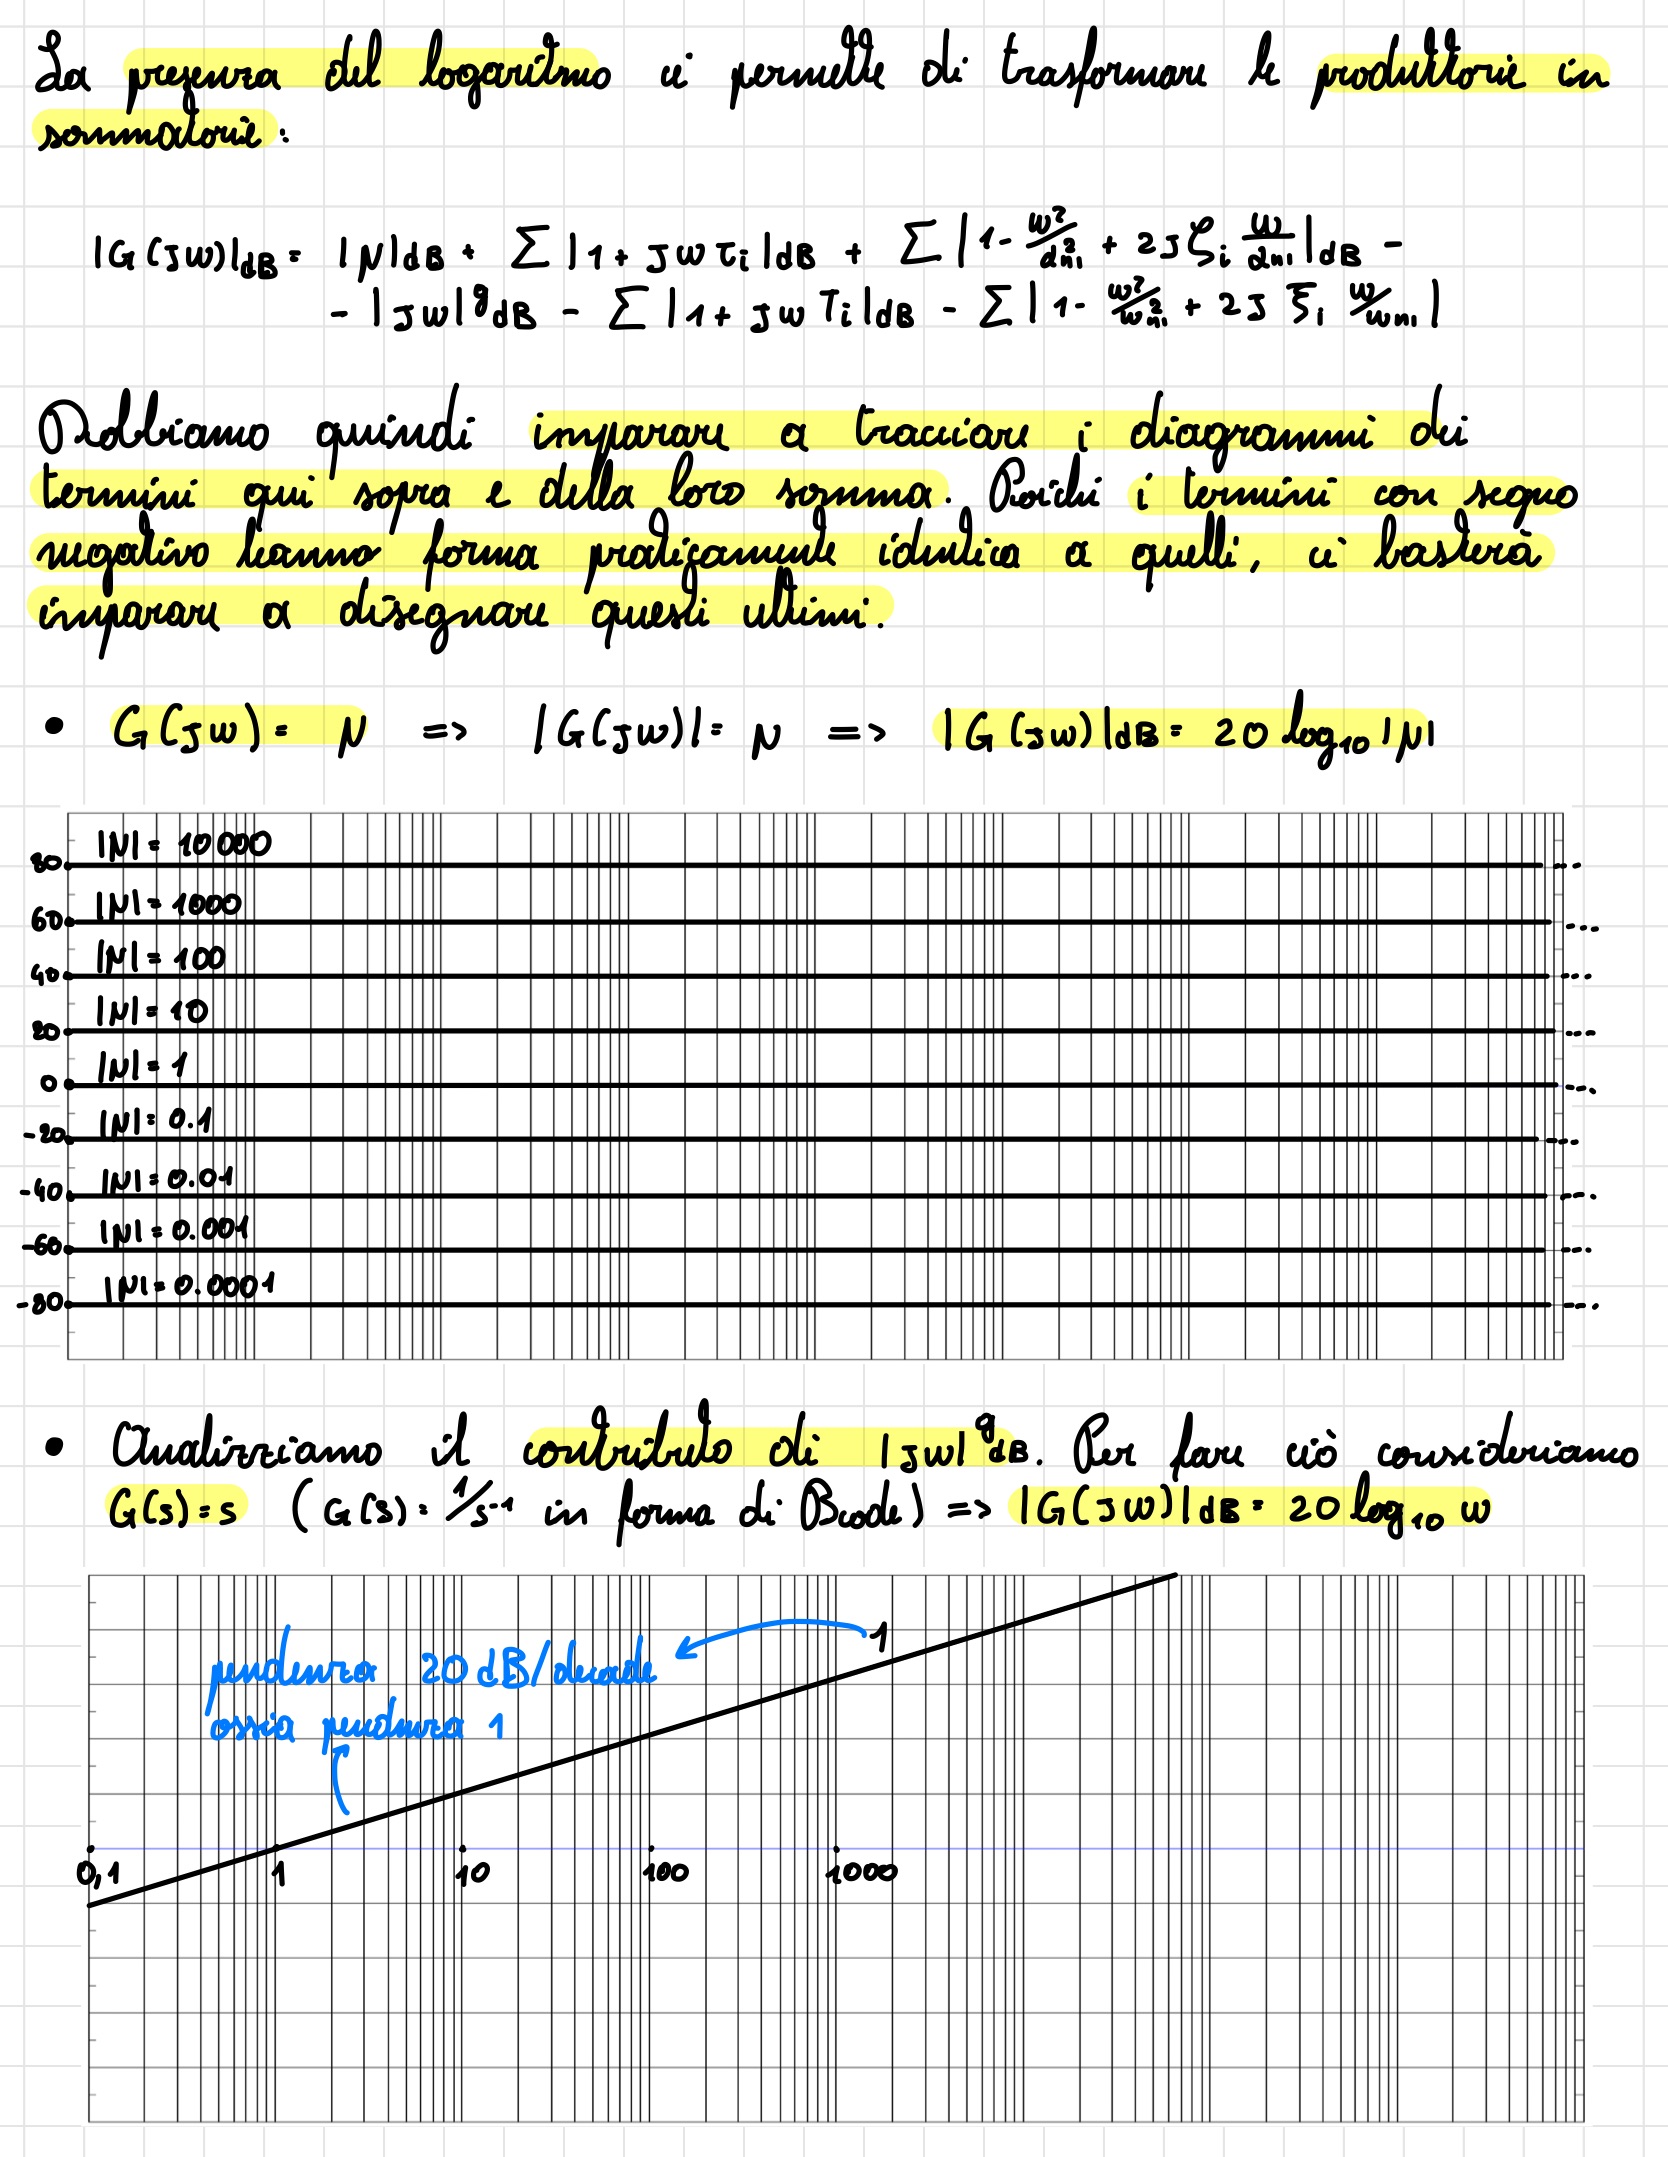 La presenza del logaritmo ci permette di trasformare le produttorie in
sommatorie:
|G(jω)|dB = |μ|dB + Σ |1 + jωτi|dB + Σ |1 - ω²/αni² + 2jζi ω/αni|dB -
- |jω|^g dB - Σ |1 + jωTi|dB - Σ |1 - ω²/ωni² + 2jξi ω/ωni|
Dobbiamo quindi imparare a tracciare i diagrammi dei
termini qui sopra e della loro somma. Poiché i termini con segno
negativo hanno forma praticamente identica a quelli, ci basterà
imparare a disegnare questi ultimi.
• G(jω) = μ => |G(jω)| = μ => |G(jω)|dB = 20 log10 |μ|
|μ| = 10 000
80
|μ| = 1000
60
|μ| = 100
40
|μ| = 10
20
|μ| = 1
0
|μ| = 0.1
-20
|μ| = 0.01
-40
|μ| = 0.001
-60
|μ| = 0.0001
-80
• Analizziamo il contributo di |jω|^g dB. Per fare ciò consideriamo
G(s) = s (G(s) = 1/s^-1 in forma di Bode) => |G(jω)|dB = 20 log10 ω
1
pendenza 20 dB/decade
ossia pendenza 1
0,1 1 10 100 1000